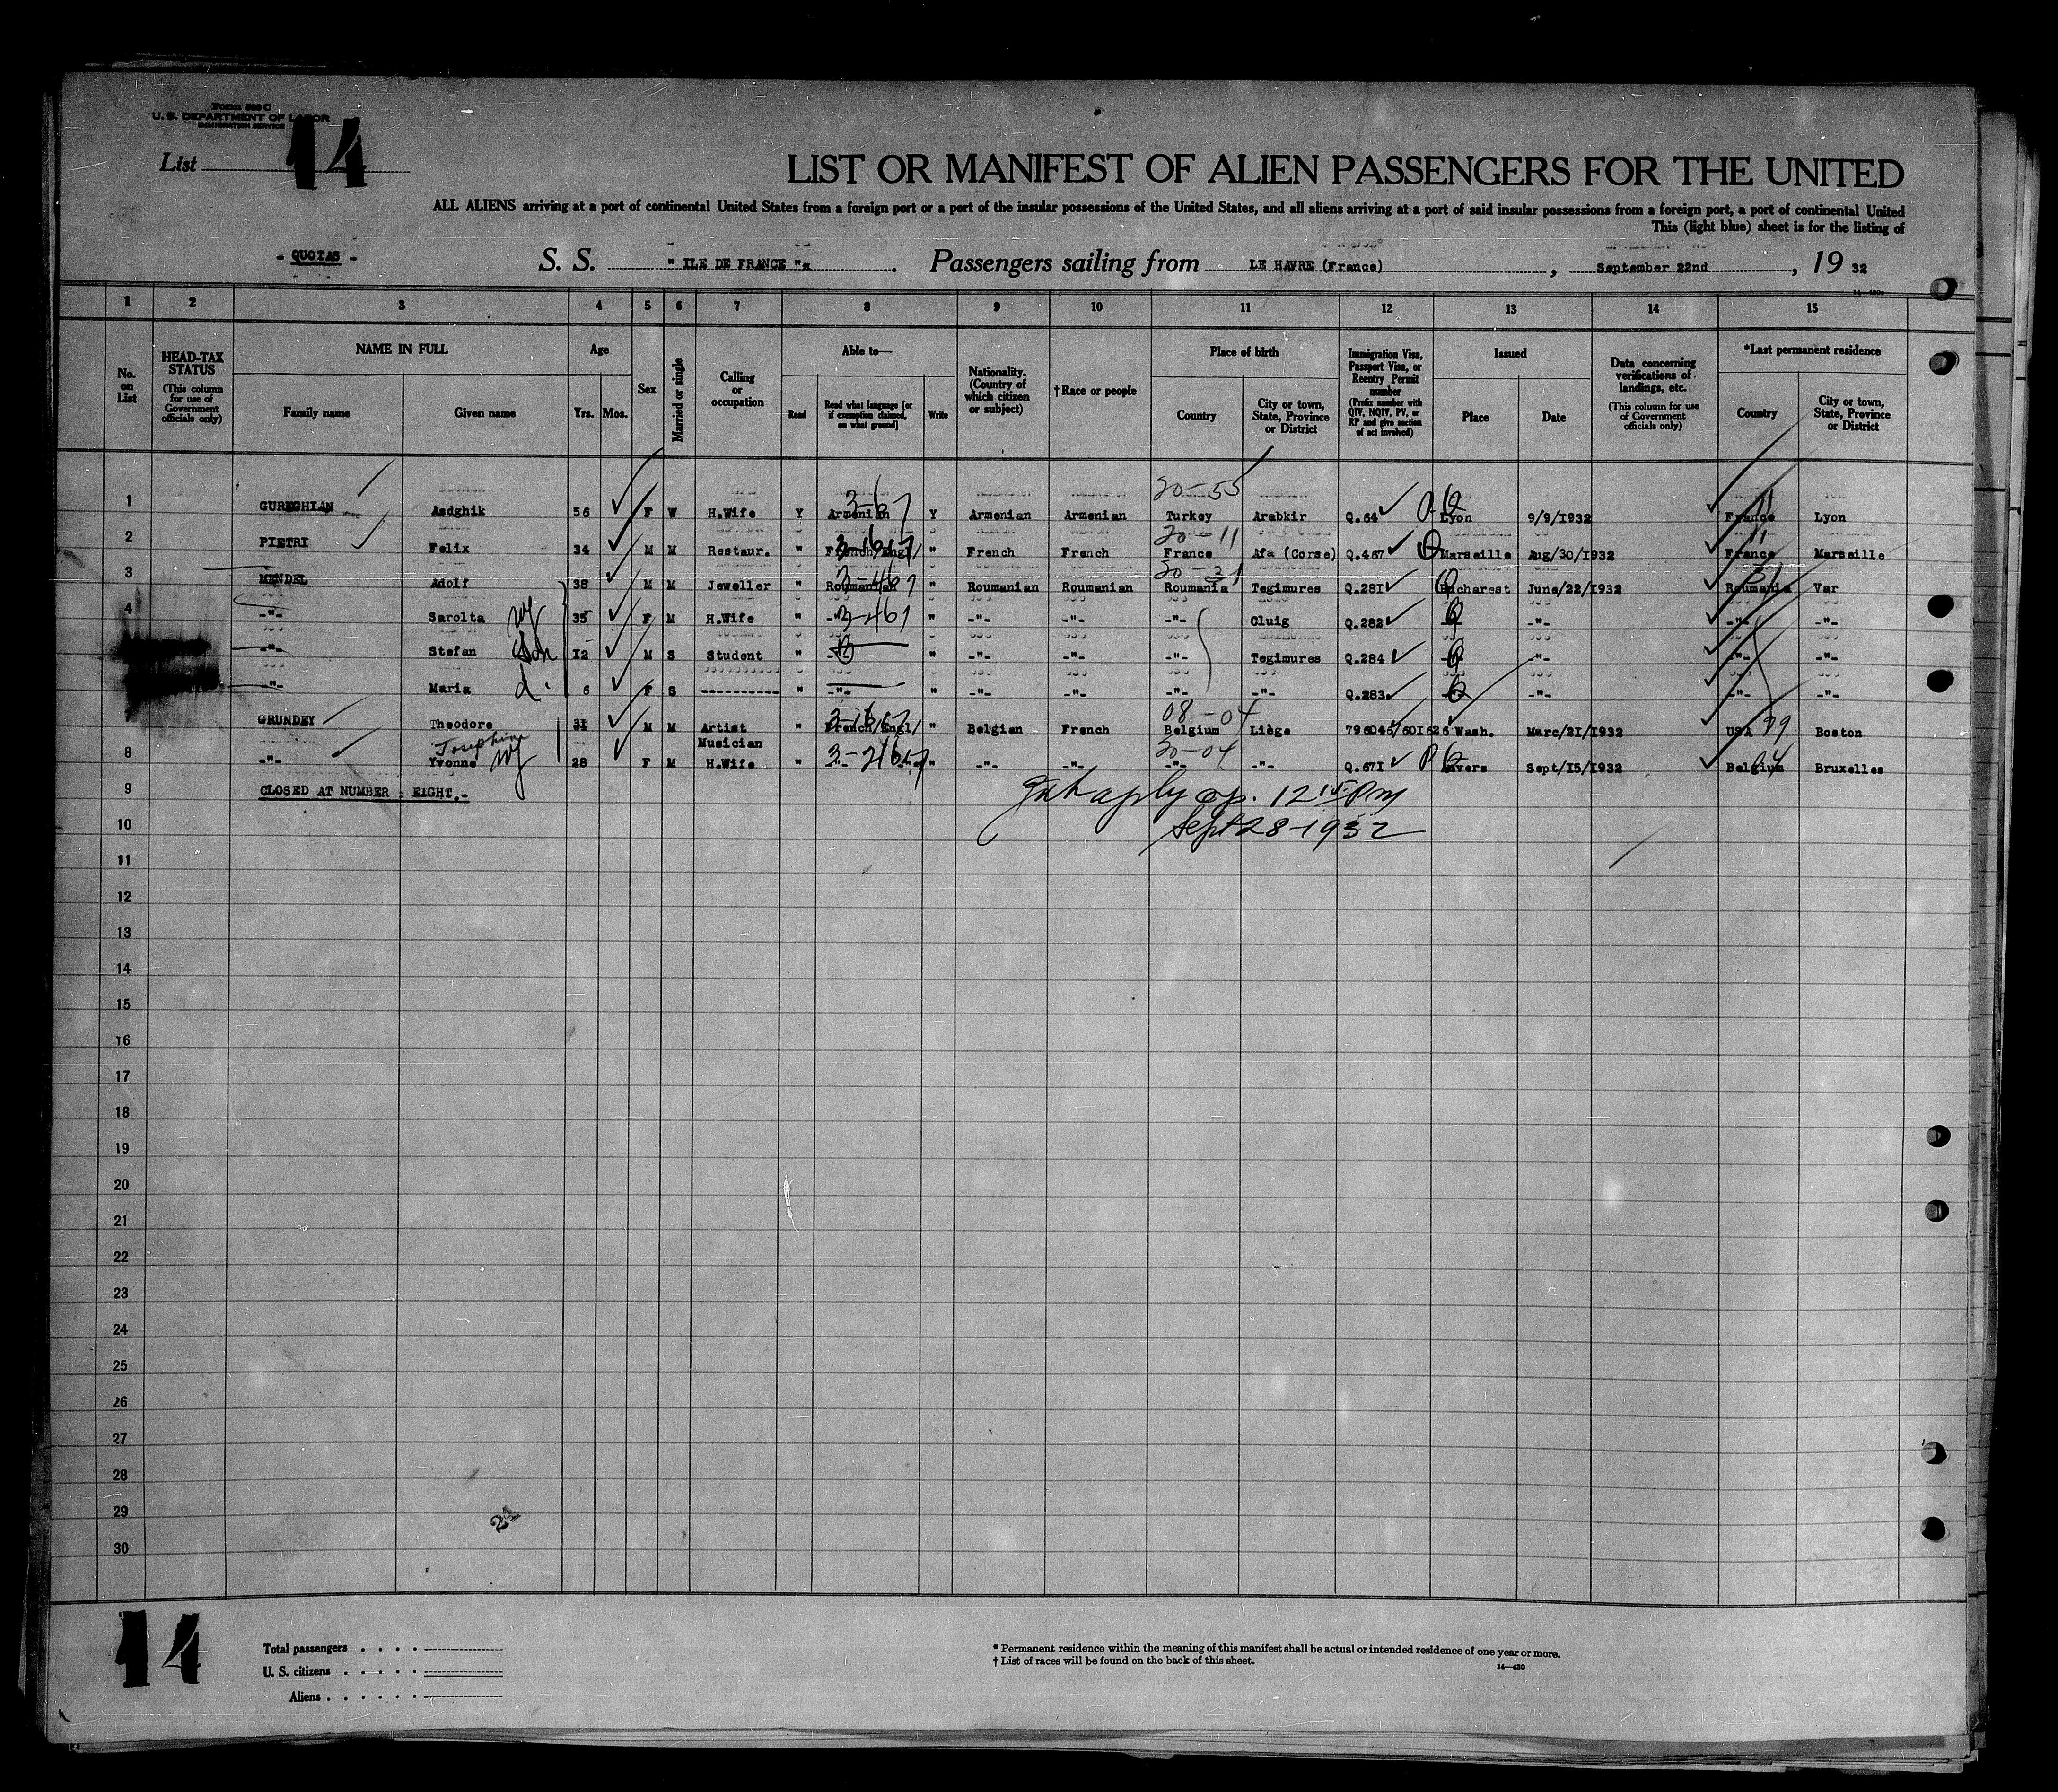 Form 500 C
U. S. DEPARTMENT OF LABOR
IMMIGRATION SERVICE
List 14
LIST OR MANIFEST OF ALIEN PASSENGERS FOR THE UNITED
ALL ALIENS arriving at a port of continental United States from a foreign port or a port of the insular possessions of the United States, and all aliens arriving at a port of said insular possessions from a foreign port, a port of continental United
This (light blue) sheet is for the listing of
- QUOTAS - S. S. " ILE DE FRANCE " Passengers sailing from LE HAVRE (France), September 22nd, 19 32
1 2 3 4 5 6 7 8 9 10 11 12 13 14 15
No. on List
HEAD-TAX STATUS
(This column for use of Government officials only)
NAME IN FULL
Family name Given name
Age
Yrs. Mos.
Sex
Married or single
Calling or occupation
Able to—
Read
Read what language [or if exemption claimed, on what ground]
Write
Nationality. (Country of which citizen or subject)
† Race or people
Place of birth
Country
City or town, State, Province or District
Immigration Visa, Passport Visa, or Reentry Permit number
(Prefix number with QIV, NQIV, PV, or RP and give section of act involved)
Issued
Place Date
Data concerning verifications of landings, etc.
(This column for use of Government officials only)
*Last permanent residence
Country
City or town, State, Province or District
30-55
1 GUREGHIAN Asdghik 56 F W H.Wife Y Armenian Y Armenian Armenian Turkey Arabkir Q.64 Lyon 9/9/1932 France Lyon
30-11
2 PIETRI Felix 34 M M Restaur. " French/Engl/ " French French France Afa (Corse) Q.467 Marseille Aug/30/1932 France Marseille
30-31
3 MENDEL Adolf 38 M M Jeweller " Roumanian " Roumanian Roumanian Roumania Tegimures Q.281 Bucharest June/22/1932 Roumania Var
4 -"- Sarolta wf 35 F M H.Wife " -"- " -"- -"- -"- Cluig Q.282 -"- -"- -"- -"-
-"- Stefan Son 12 M S Student " -"- " -"- -"- -"- Tegimures Q.284 -"- -"- -"- -"-
-"- Maria d. 6 F S ---------- " -"- " -"- -"- -"- Q.283 -"- -"- -"- -"-
08-04
7 GRUNDEY Theodore 31 M M Artist Musician " French/Engl/ " Belgian French Belgium Liège 796046/601626 Wash. Marc/21/1932 USA 99 Boston
Josephine 30-04
8 -"- Yvonne wf 28 F M H.Wife " -"- " -"- -"- -"- -"- Q.671 Anvers Sept/15/1932 Belgium Bruxelles
9 CLOSED AT NUMBER : EIGHT.-
12 15 PM
10 Sept 28-1932
11
12
13
14
15
16
17
18
19
20
21
22
23
24
25
26
27
28
29
30
14
Total passengers
U. S. citizens
Aliens
* Permanent residence within the meaning of this manifest shall be actual or intended residence of one year or more.
† List of races will be found on the back of this sheet.
14—430